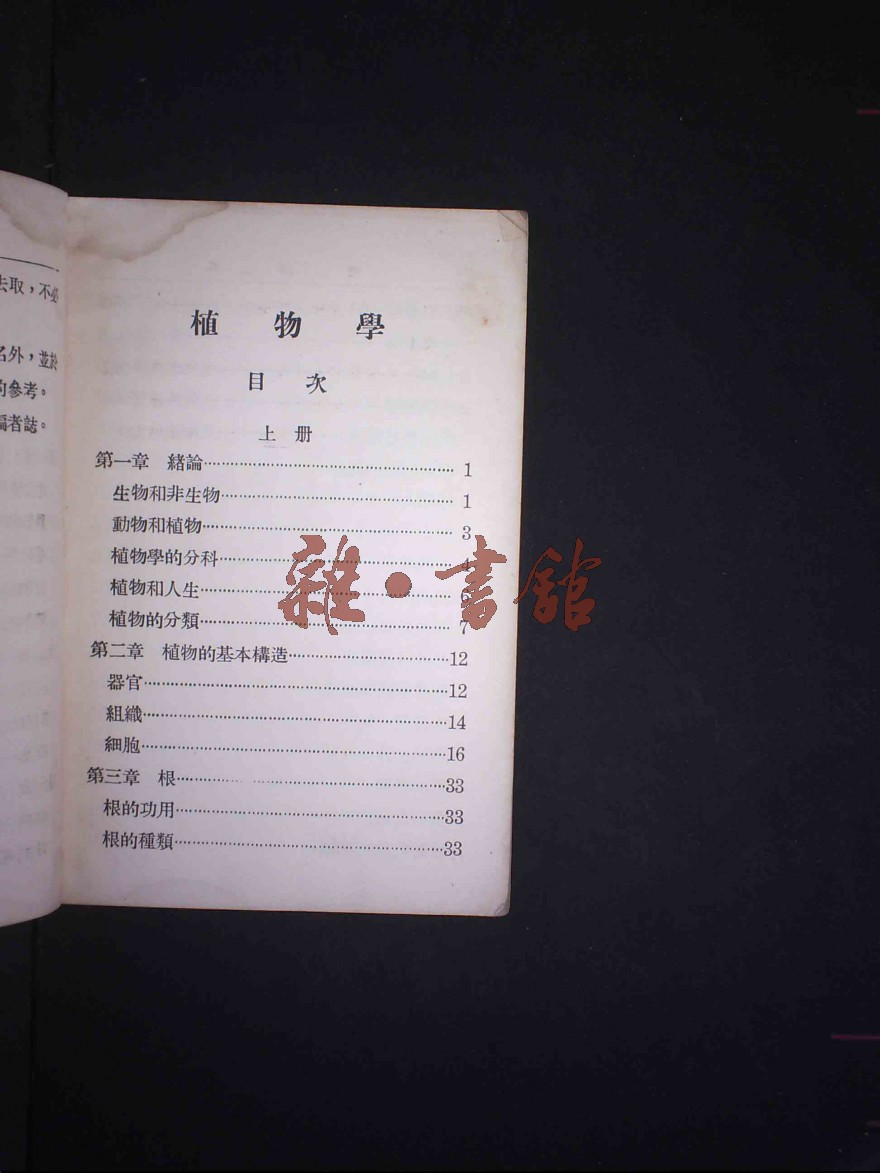 去取，不必
名外，並於
的參考。
編者誌。
植物學
目次
上册
第一章　緒論…………1
生物和非生物…………1
動物和植物…………3
植物學的分科…………4
植物和人生…………6
植物的分類…………7
第二章　植物的基本構造…………12
器官…………12
組織…………14
細胞…………16
第三章　根…………33
根的功用…………33
根的種類…………33
雜·書館